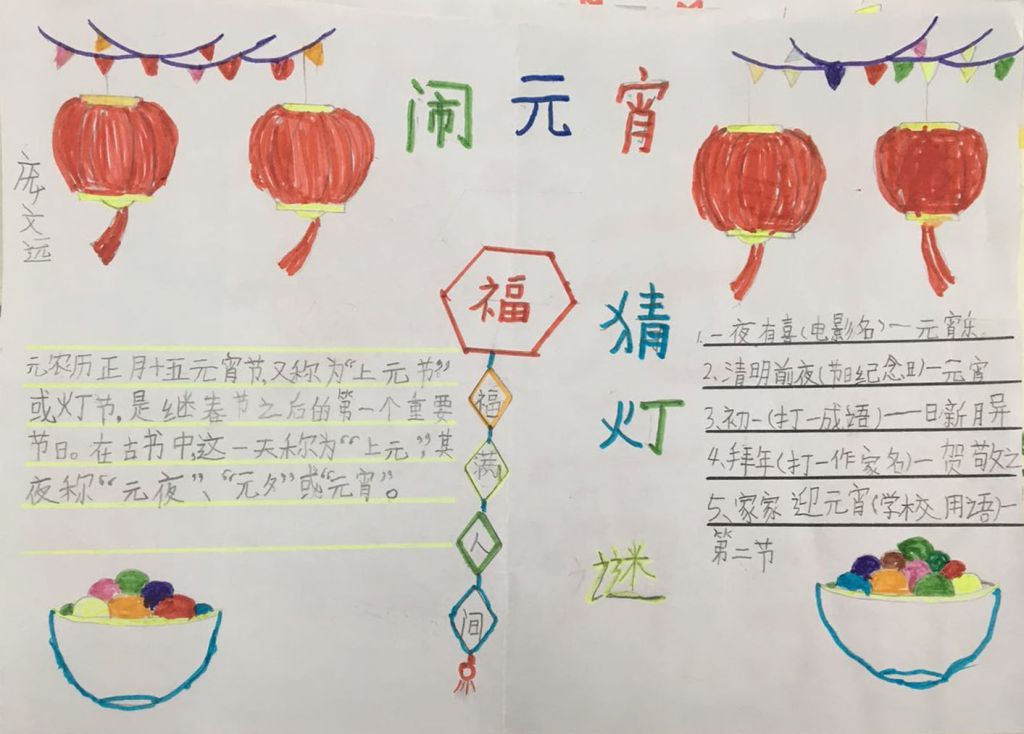 闹元宵
庞文远
元农历正月十五元宵节,又称为“上元节”
或灯节,是继春节之后的第一个重要
节日。在古书中,这一天称为“上元”,其
夜称“元夜”、“元夕”或“元宵”。
福
福
满
人
间
猜
灯
谜
1.一夜有喜(电影名)一元宵乐
2、清明前夜(节日纪念日)一元宵
3、初一(打一成语)一一日新月异
4、拜年(打一作家名)一贺敬之
5、家家迎元宵(学校用语)一
第二节